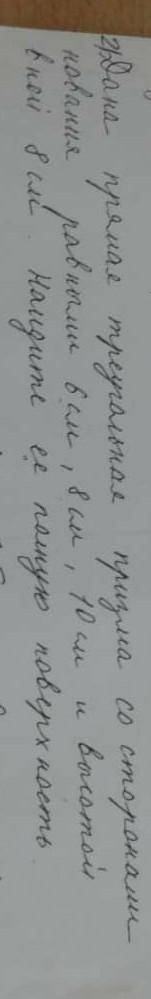 2) Дана прямая треугольная призма со сторонами
нования равными 6 см, 8 см, 10 см и высотой
вной 8 см. Найдите её полную поверхность